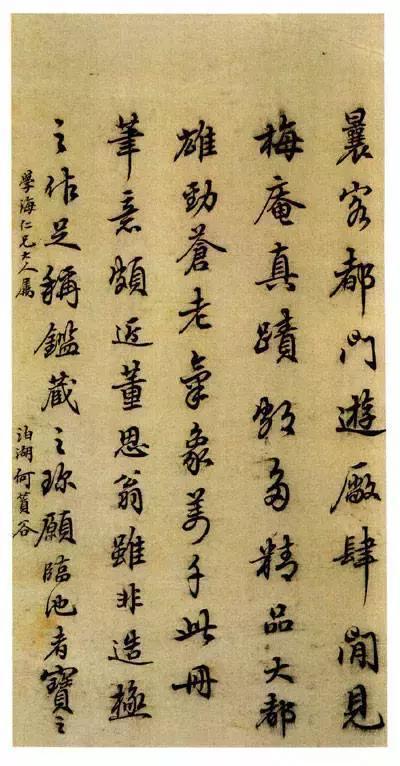 曩客都門遊厰肆間見
梅庵真蹟數多精品大都
雄勁蒼老氣象萬千此冊
筆意頗近董思翁雖非造極
之作足稱鑑藏之珍願臨池者寶之
學海仁兄大人属
泊湖何莨谷